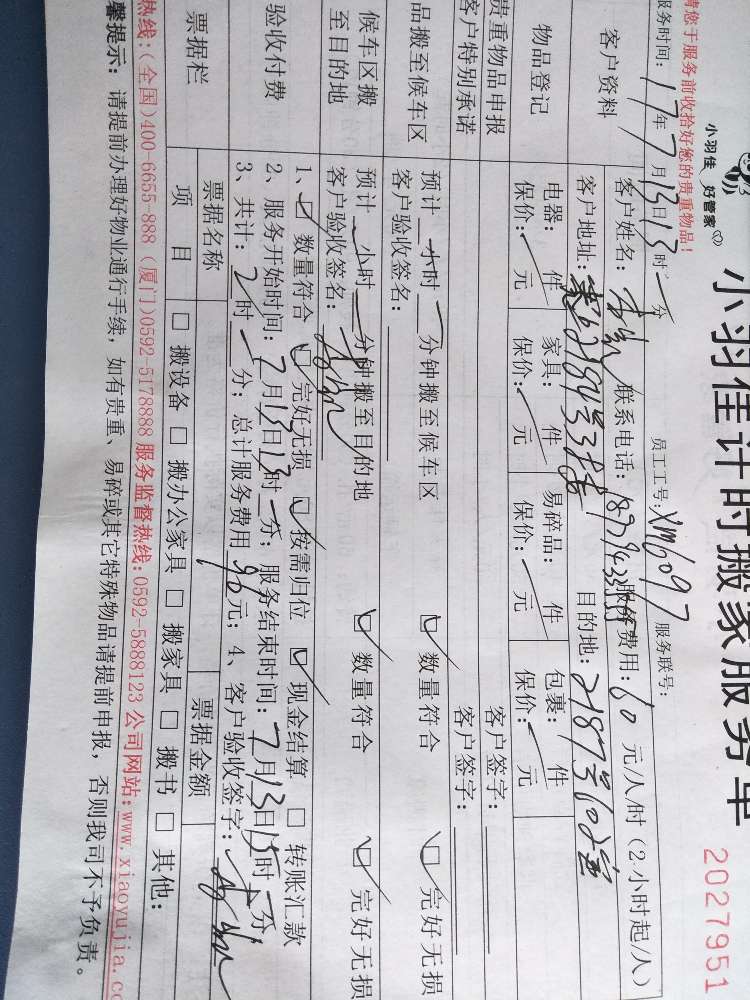 小羽佳 好管家
小羽佳计时搬家服务单
2027951
请您于服务前收拾好您的贵重物品!
员工工号:XM6097 服务联号:
服务时间: 17年7月13日13时 分
客户资料 客户姓名: 联系电话: 服务费用:60 元/人/时(2小时起/人)
客户地址: 目的地:2187号602室
物品登记 电器: 件 家具: 件 易碎品: 件 包裹: 件
保价: 元 保价: 元 保价: 元 保价: 元
贵重物品申报 客户签字:
客户特别承诺 客户签字:
品搬至候车区 预计 小时 分钟搬至候车区 ☑ 数量符合 ☑ 完好无损
客户验收签名:
候车区搬至目的地 预计 小时 分钟搬至目的地 ☑ 数量符合 ☑ 完好无损
客户验收签名:
验收付费 1、☑ 数量符合 ☑ 完好无损 ☑ 按需归位 ☑ 现金结算 □ 转账汇款
2、服务开始时间:7月13日13时 分; 服务结束时间:7月13日15时 分
3、共计:2时 分; 总计服务费用 元; 4、客户验收签字:
票据栏 票据名称 票据金额
项目 □ 搬设备 □ 搬办公家具 □ 搬家具 □ 搬书 □ 其他:
热线:(全国)400-6655-888 (厦门)0592-5178888 服务监督热线:0592-5888123 公司网站:www.xiaoyujia.co
馨提示: 请提前办理好物业通行手续, 如有贵重、易碎或其它特殊物品请提前申报, 否则我司不予负责。